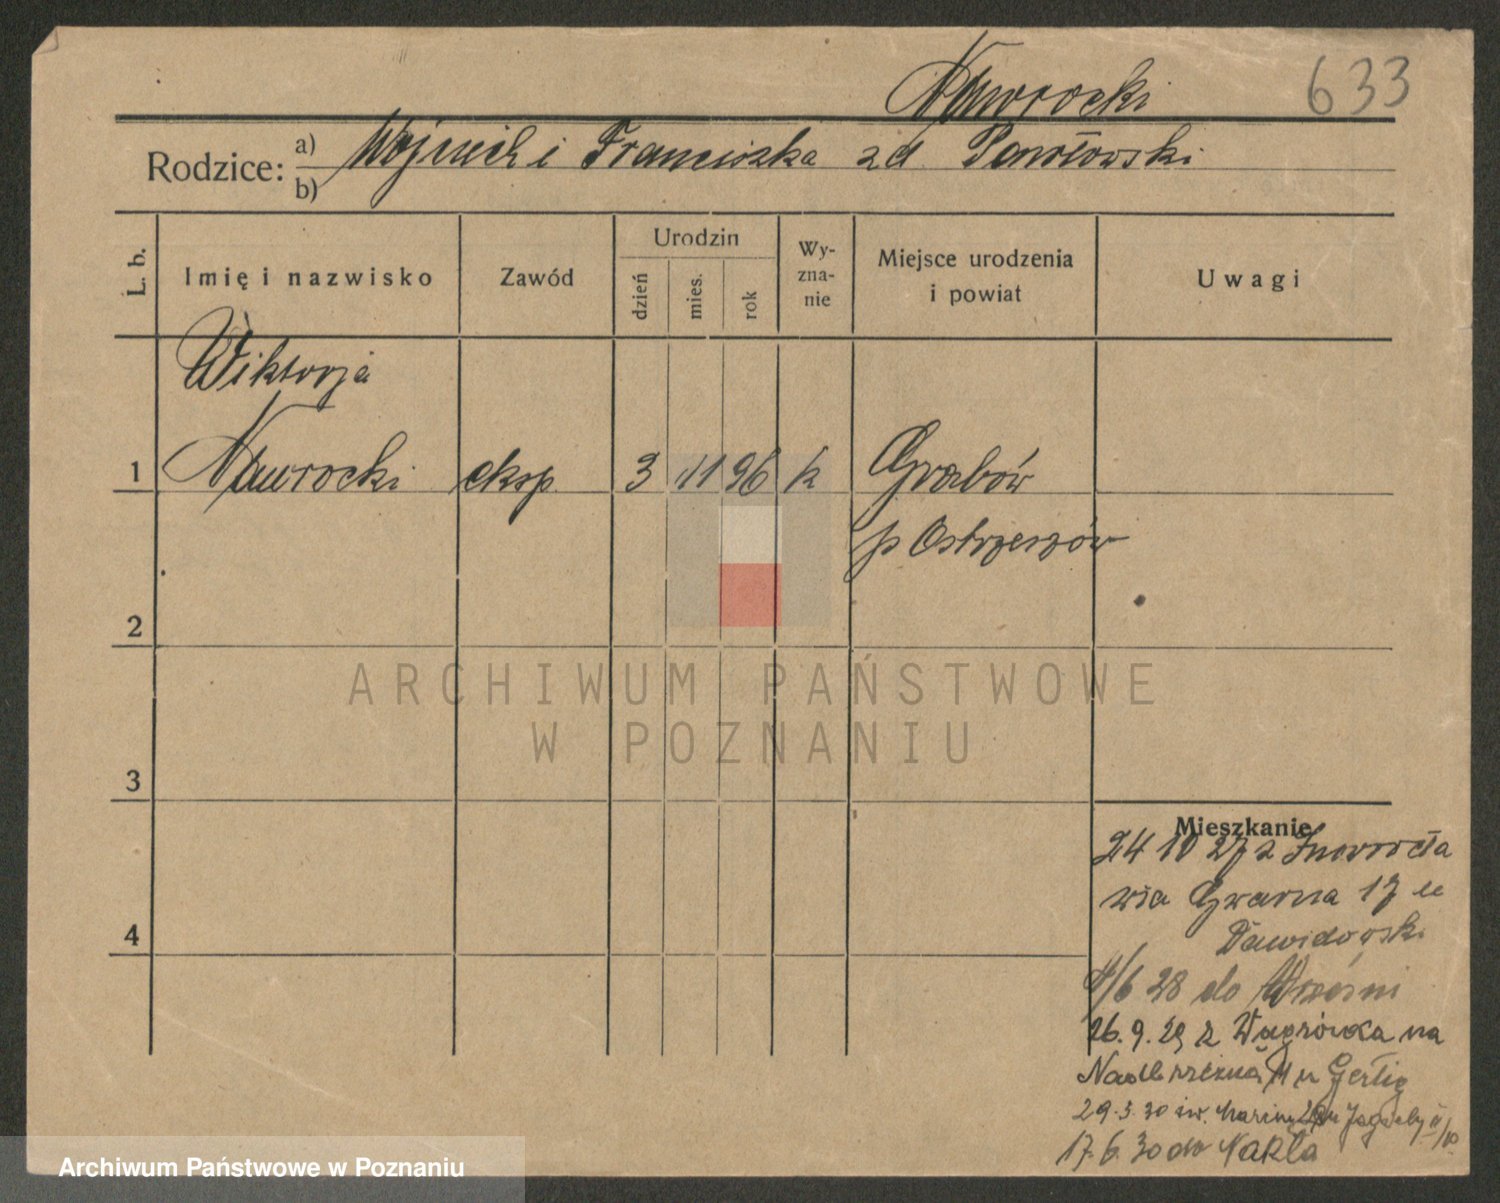 Nawrocki 633
Rodzice: a) Wojciech i Franciszka zd Pawłowski
b)
L. b. Imię i nazwisko Zawód Urodzin dzień mies. rok Wy-zna-nie Miejsce urodzenia i powiat Uwagi
Wiktorja
1 Nawrocki eksp. 3 11 96 k Grabów
p Ostrzeszów
2
ARCHIWUM PAŃSTWOWE
W POZNANIU
3
Mieszkanie
24 10 27 z Inowrocła
wia Gwarna 17 u
4 Dawidowski
4/6 28 do Wrześni
26. 9. 29 z Wągrówca na
Nadbrzeżna 11 u Gerlig
29. 3. 30 św. Marcin
17. 6. 30 do Nakła
Archiwum Państwowe w Poznaniu